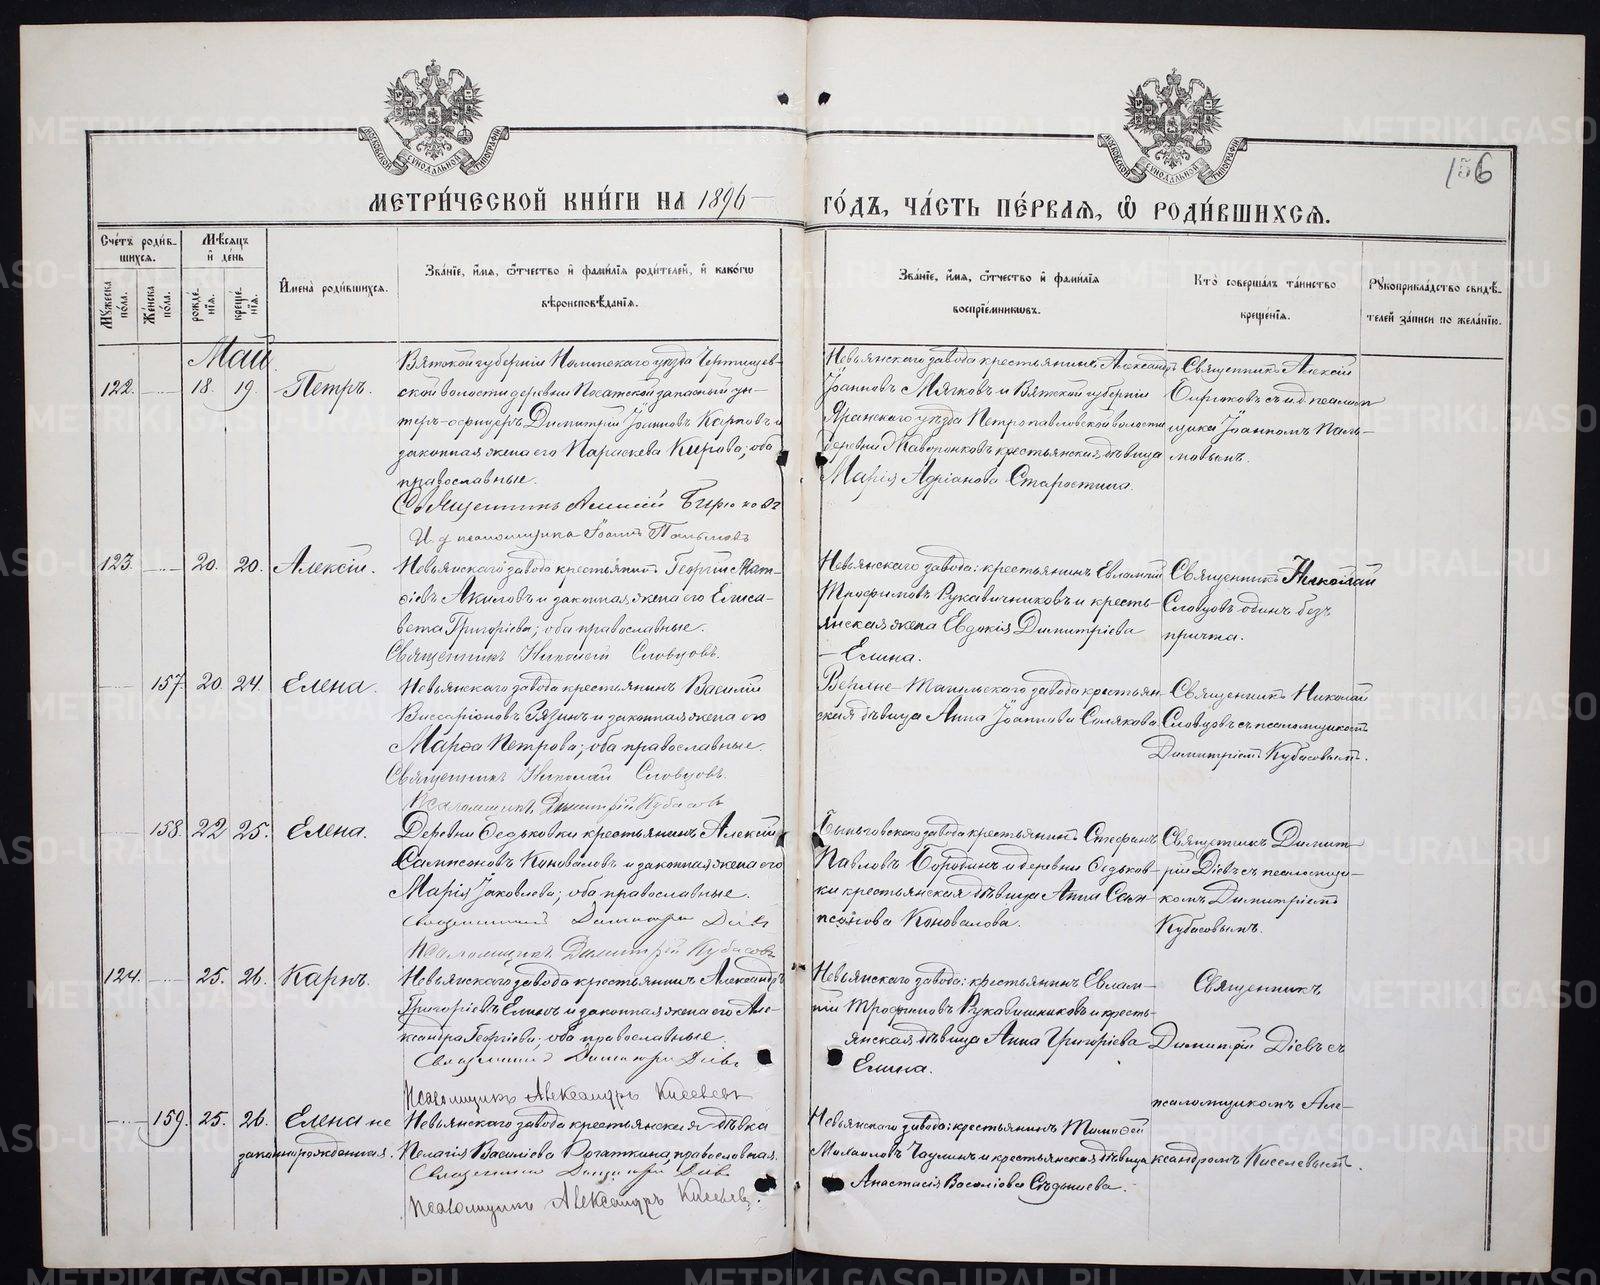 156
МЕТРИ́ЧЕСКОЙ КНИ́ГИ НА 1896 ГО́ДЪ, ЧА́СТЬ ПЕ́РВАѦ, Ѽ РОДИ́ВШИХСѦ.
Сче́тъ роди́в-
шихсѧ.
Мꙋжеска по́ла.
Же́нска по́ла.
Мѣ́сѧцъ и҆ де́нь
рожде́-
нїѧ.
креще́-
нїѧ.
И҆мена̀ роди́вшихсѧ.
Зва́нїе, и҆́мѧ, ѻ҆́тчество и҆ фами́лїѧ роди́телей, и҆ како́гѡ
вѣроисповѣ́данїѧ.
Зва́нїе, и҆́мѧ, ѻ҆́тчество и҆ фами́лїѧ
воспрїе́мникѡвъ.
Кто̀ соверша́лъ та́инство
креще́нїѧ.
Рꙋкоприкла́дство свидѣ́-
телей за́писи по жела́нїю.
Май
122. 18. 19. Петръ.
Вятской губерніи Нолинскаго уѣзда
ской волости деревни запасный ун-
теръ-офицеръ Димитрій Іоанновъ Карповъ и
законная жена его Параскева Кирова; оба
православные.
Священникъ Алексій Бирюковъ
И. д. псаломщика Іоаннъ
Невьянскаго завода крестьянинъ Александръ
Іоанновъ Мягковъ и Вятской губерніи
Яранскаго уѣзда Петропавловской волости
деревни Жаворонковъ крестьянская дѣвица
Марія Адріанова Старостина.
Священникъ Алексій
Бирюковъ съ и. д. псалом-
щика Іоанномъ Паль-
мовымъ.
123. 20. 20. Алексій.
Невьянскаго завода крестьянинъ Георгій Мат-
ѳіевъ Акиловъ и законная жена его Елиса-
вета Григоріева; оба православные.
Священникъ Николай Словцовъ.
Невьянскаго завода: крестьянинъ Евлампій
Трофимовъ Рукавишниковъ и кресть-
янская жена Евдокія Димитріева
Елина.
Священникъ Николай
Словцовъ одинъ безъ
причта.
157. 20. 24. Елена.
Невьянскаго завода крестьянинъ Василій
Виссаріоновъ и законная жена его
Марѳа Петрова; оба православные.
Священникъ Николай Словцовъ.
Псаломщикъ Димитрій Кубасовъ
Верхне-Тагильскаго завода крестьян-
ская дѣвица Анна Іоаннова Солякова.
Священникъ Николай
Словцовъ съ псаломщикомъ
Димитріемъ Кубасовымъ.
158. 22 25. Елена.
Деревни Ѳедьковки крестьянинъ Алексій
Сампсоновъ Коноваловъ и законная жена его
Марія Іаковлева; оба православные.
Священникъ Димитрій Діевъ
Псаломщикъ Димитрій Кубасовъ
Быньговскаго завода крестьянинъ Стефанъ
Павловъ Бородинъ и деревни Ѳедьков-
ки крестьянская дѣвица Анна Сам-
псонова Коновалова.
Священникъ Димит-
рій Діевъ съ псаломщи-
комъ Димитріемъ
Кубасовымъ.
124. 25. 26. Карпъ.
Невьянскаго завода крестьянинъ Александръ
Григоріевъ Елинъ и законная жена его Але-
ксандра Георгіева; оба православные.
Священникъ Димитрій Діевъ
Псаломщикъ Александръ Киселевъ
Невьянскаго завода: крестьянинъ Евлам-
пій Трофимовъ Рукавишниковъ и кресть-
янская дѣвица Анна Григоріева
Елина.
Священникъ
Димитрій Діевъ съ
псаломщикомъ Але-
ксандромъ Киселевымъ.
159. 25. 26. Елена не
законнорожденная.
Невьянскаго завода крестьянская дѣвка
Пелагія Василіева Рогаткина, православная.
Священникъ Димитрій Діевъ
Псаломщикъ Александръ Киселевъ.
Невьянскаго завода: крестьянинъ Тимоѳей
Михаиловъ и крестьянская дѣвица
Анастасія Василіева Сѣдышева.
METRIKI.GASO-URAL.RU